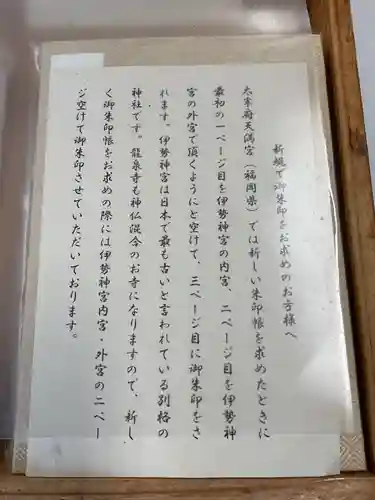 新規で御朱印をお求めのお方様へ
太宰府天満宮(福岡県)では新しい朱印帳を求めたときに
最初の一ページ目を伊勢神宮の内宮、二ページ目を伊勢神
宮の外宮で頂くようにと空けて、三ページ目に御朱印をさ
れます。伊勢神宮は日本で最も古いと言われている別格の
神社です。龍泉寺も神仏混合のお寺になりますので、新し
く御朱印帳をお求めの際には伊勢神宮内宮・外宮の二ペー
ジ空けて御朱印させていただいております。